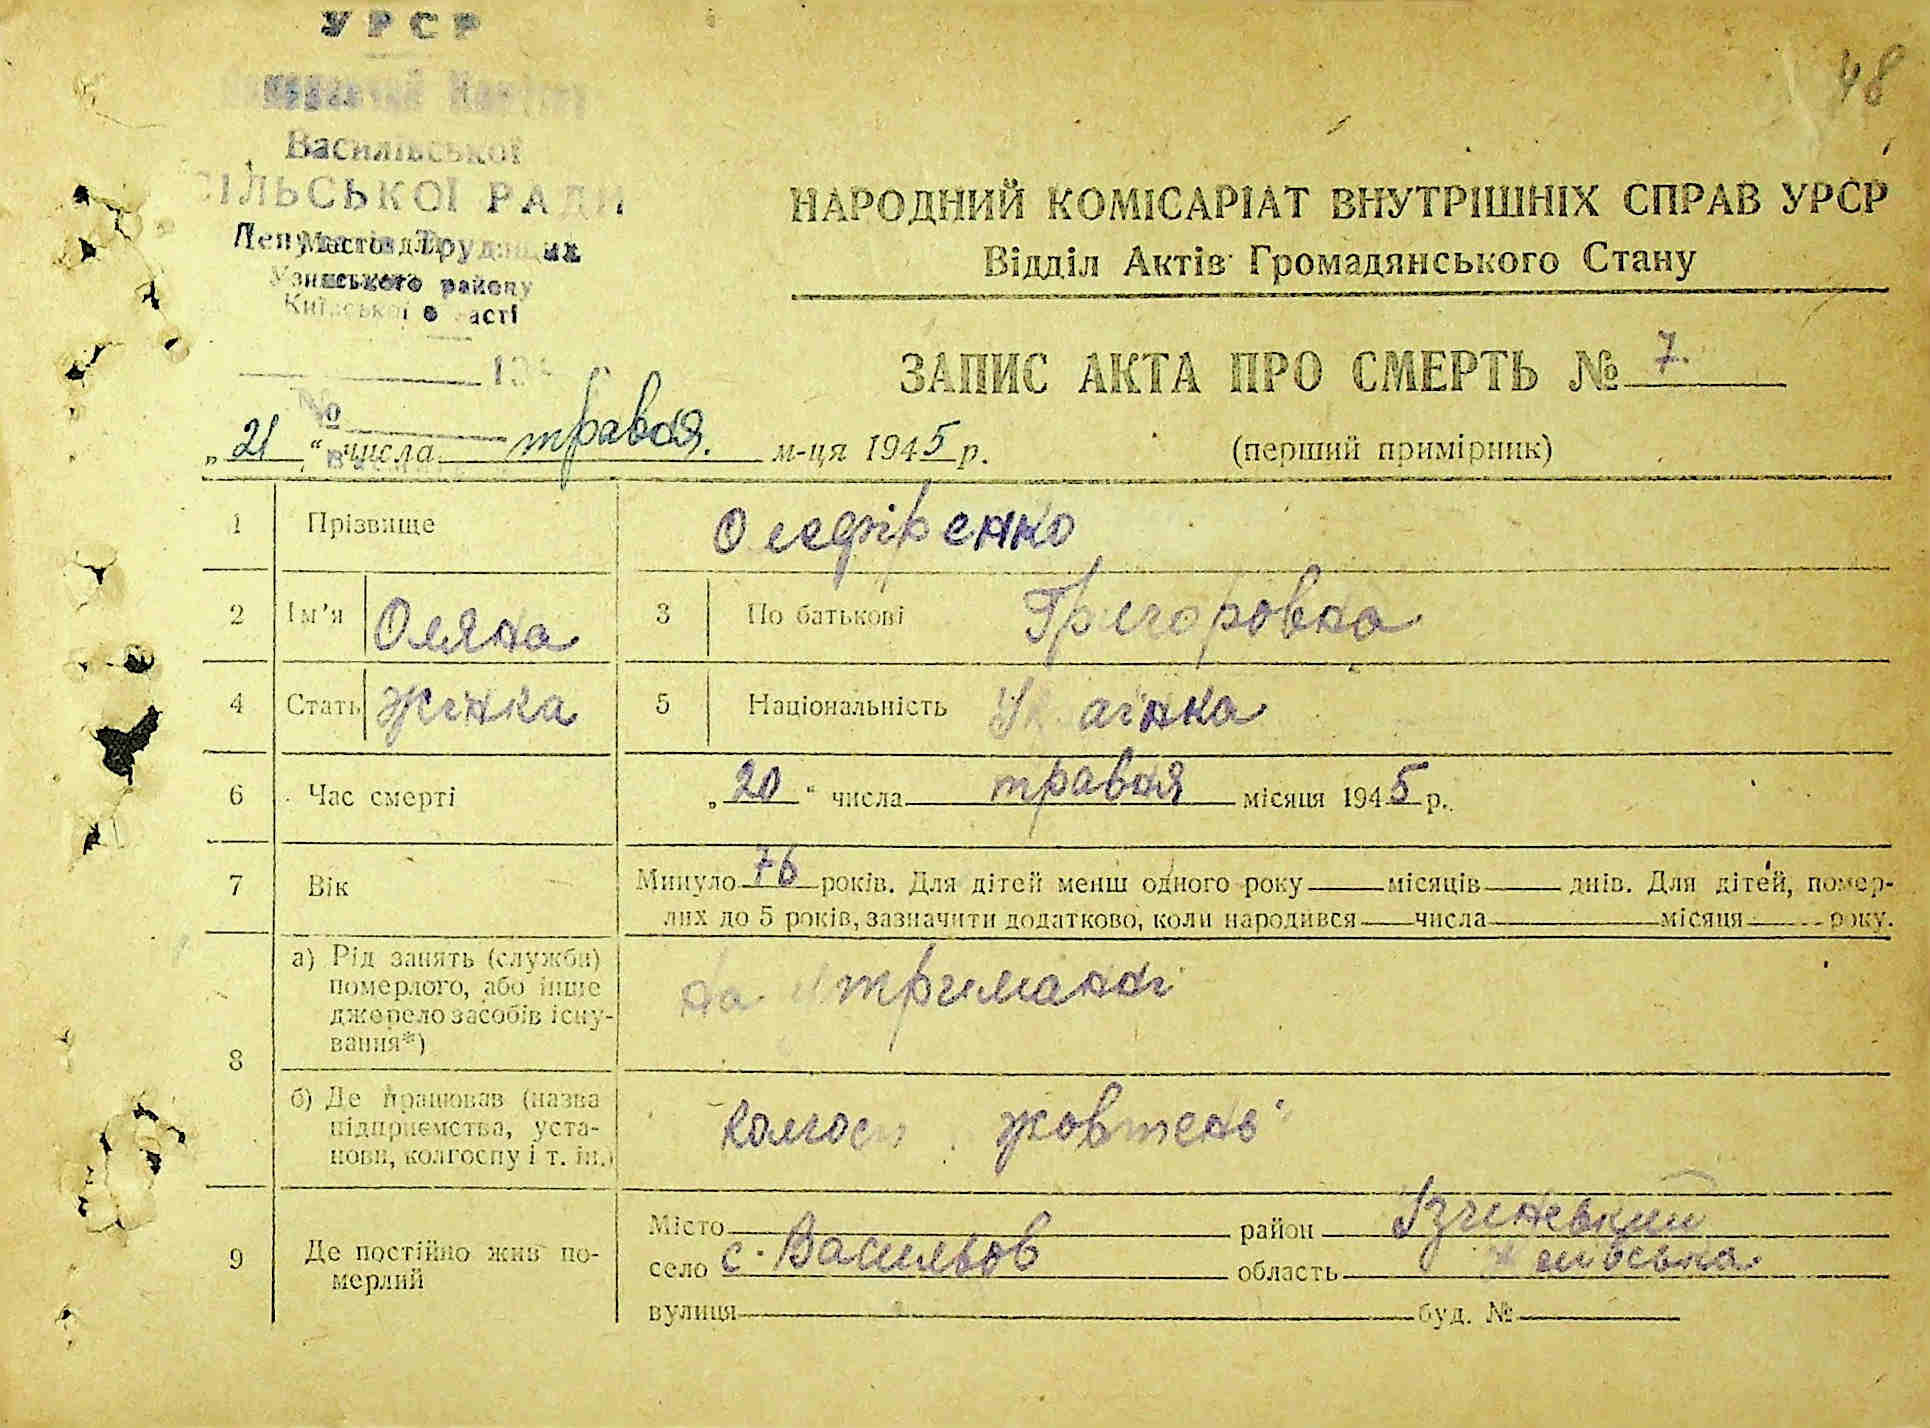 УРСР
48
Василівської
СІЛЬСЬКОЇ РАДИ
Депутатів Трудящих
району
Київської області
НАРОДНИЙ КОМІСАРІАТ ВНУТРІШНІХ СПРАВ УРСР
Відділ Актів Громадянського Стану
ЗАПИС АКТА ПРО СМЕРТЬ № 7.
№
„21“ числа травня. м-ця 1945 р. (перший примірник)
1 Прізвище Олефіренко
2 Ім'я Оляна 3 По батькові Григоровна
4 Стать жінка 5 Національність Українка
6 Час смерті „20“ числа травня місяця 1945 р.
7 Вік Минуло 76 років. Для дітей менш одного року місяців днів. Для дітей, помер-
лих до 5 років, зазначити додатково, коли народився числа місяця року.
8 а) Рід занять (служби) померлого, або інше джерело засобів існу-вання*) на утриманні
б) Де працював (назва підприємства, уста-нови, колгоспу і т. ін.) колгосп „жовтень"
9 Де постійно жив по-мерлий Місто район
село с. Васильов область
вулиця буд. №